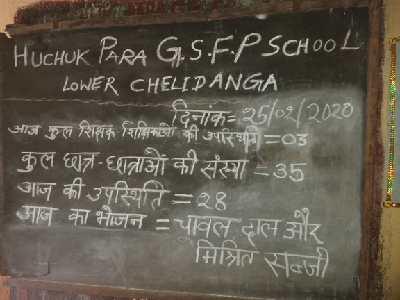 HUCHUK PARA G.S.F.P SCHOOL
LOWER CHELIDANGA
दिनांक= 25/02/2020
आज कुल शिक्षक शिक्षिकाओं की उपस्थिति = 03
कुल छात्र-छात्राओं की संख्या = 35
आज की उपस्थिति = 28
आज का भोजन = चावल, दाल और
मिश्रित सब्जी